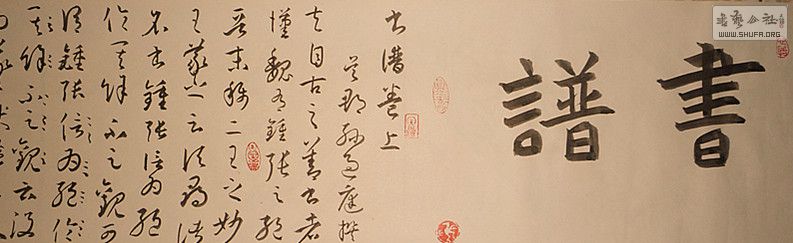 書譜
書譜卷上
吳郡孫過庭撰
夫自古之善書者
漢魏有鍾張之絕
晉末稱二王之妙
王羲之云頃尋諸
名書鍾張信為絕
倫其餘不足觀可
謂鍾張信為絕倫
其餘不足觀云沒
而羲獻
書藝公社
WWW.SHUFA.ORG